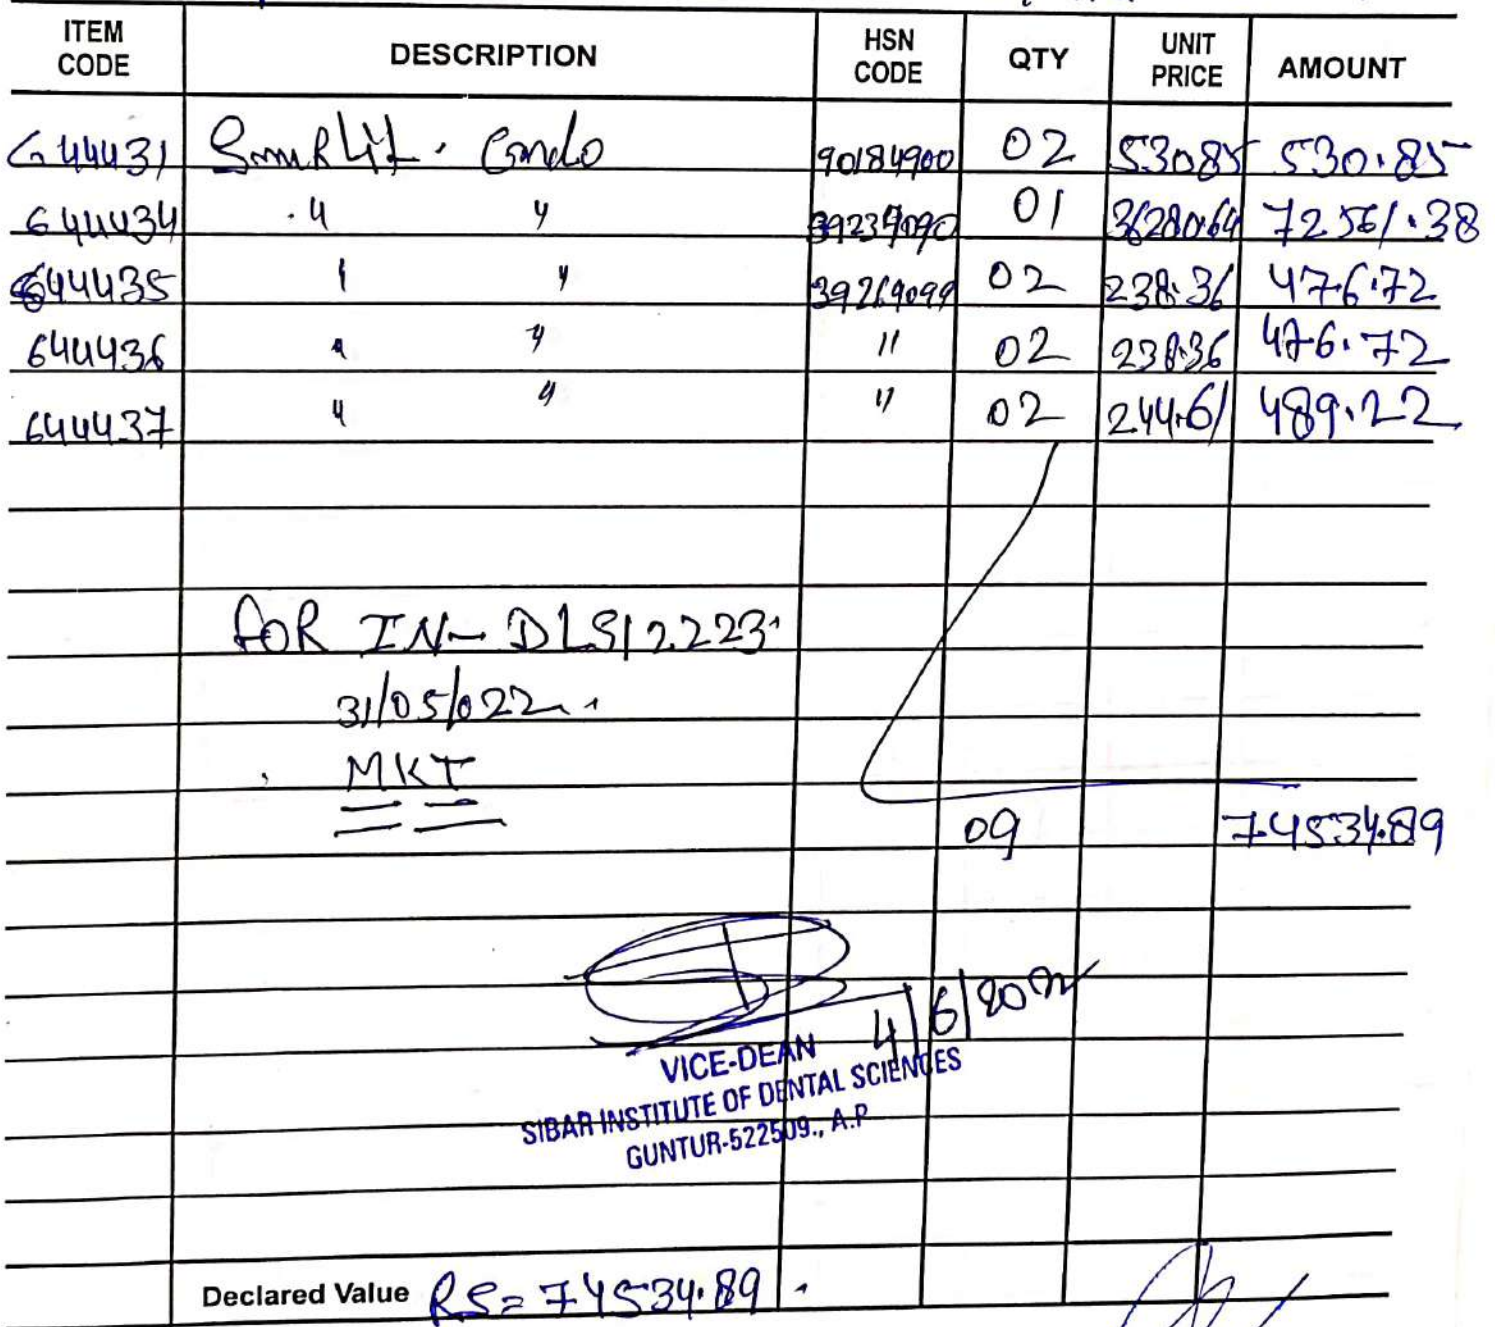 ITEM CODE DESCRIPTION HSN CODE QTY UNIT PRICE AMOUNT
644431 90184900 02 53085 530.85
644434 " " 01 36280.64 72561.38
644435 " " 39269099 02 238.36 476.72
644436 " " " 02 238.36 476.72
644437 " " " 02 244.61 489.22
FOR IN- DLS12223.
31/05/022.
MKT
09 74534.89
4/6/2022
VICE-DEAN
SIBAR INSTITUTE OF DENTAL SCIENCES
GUNTUR-522509., A.P
Declared Value RS= 74534.89.